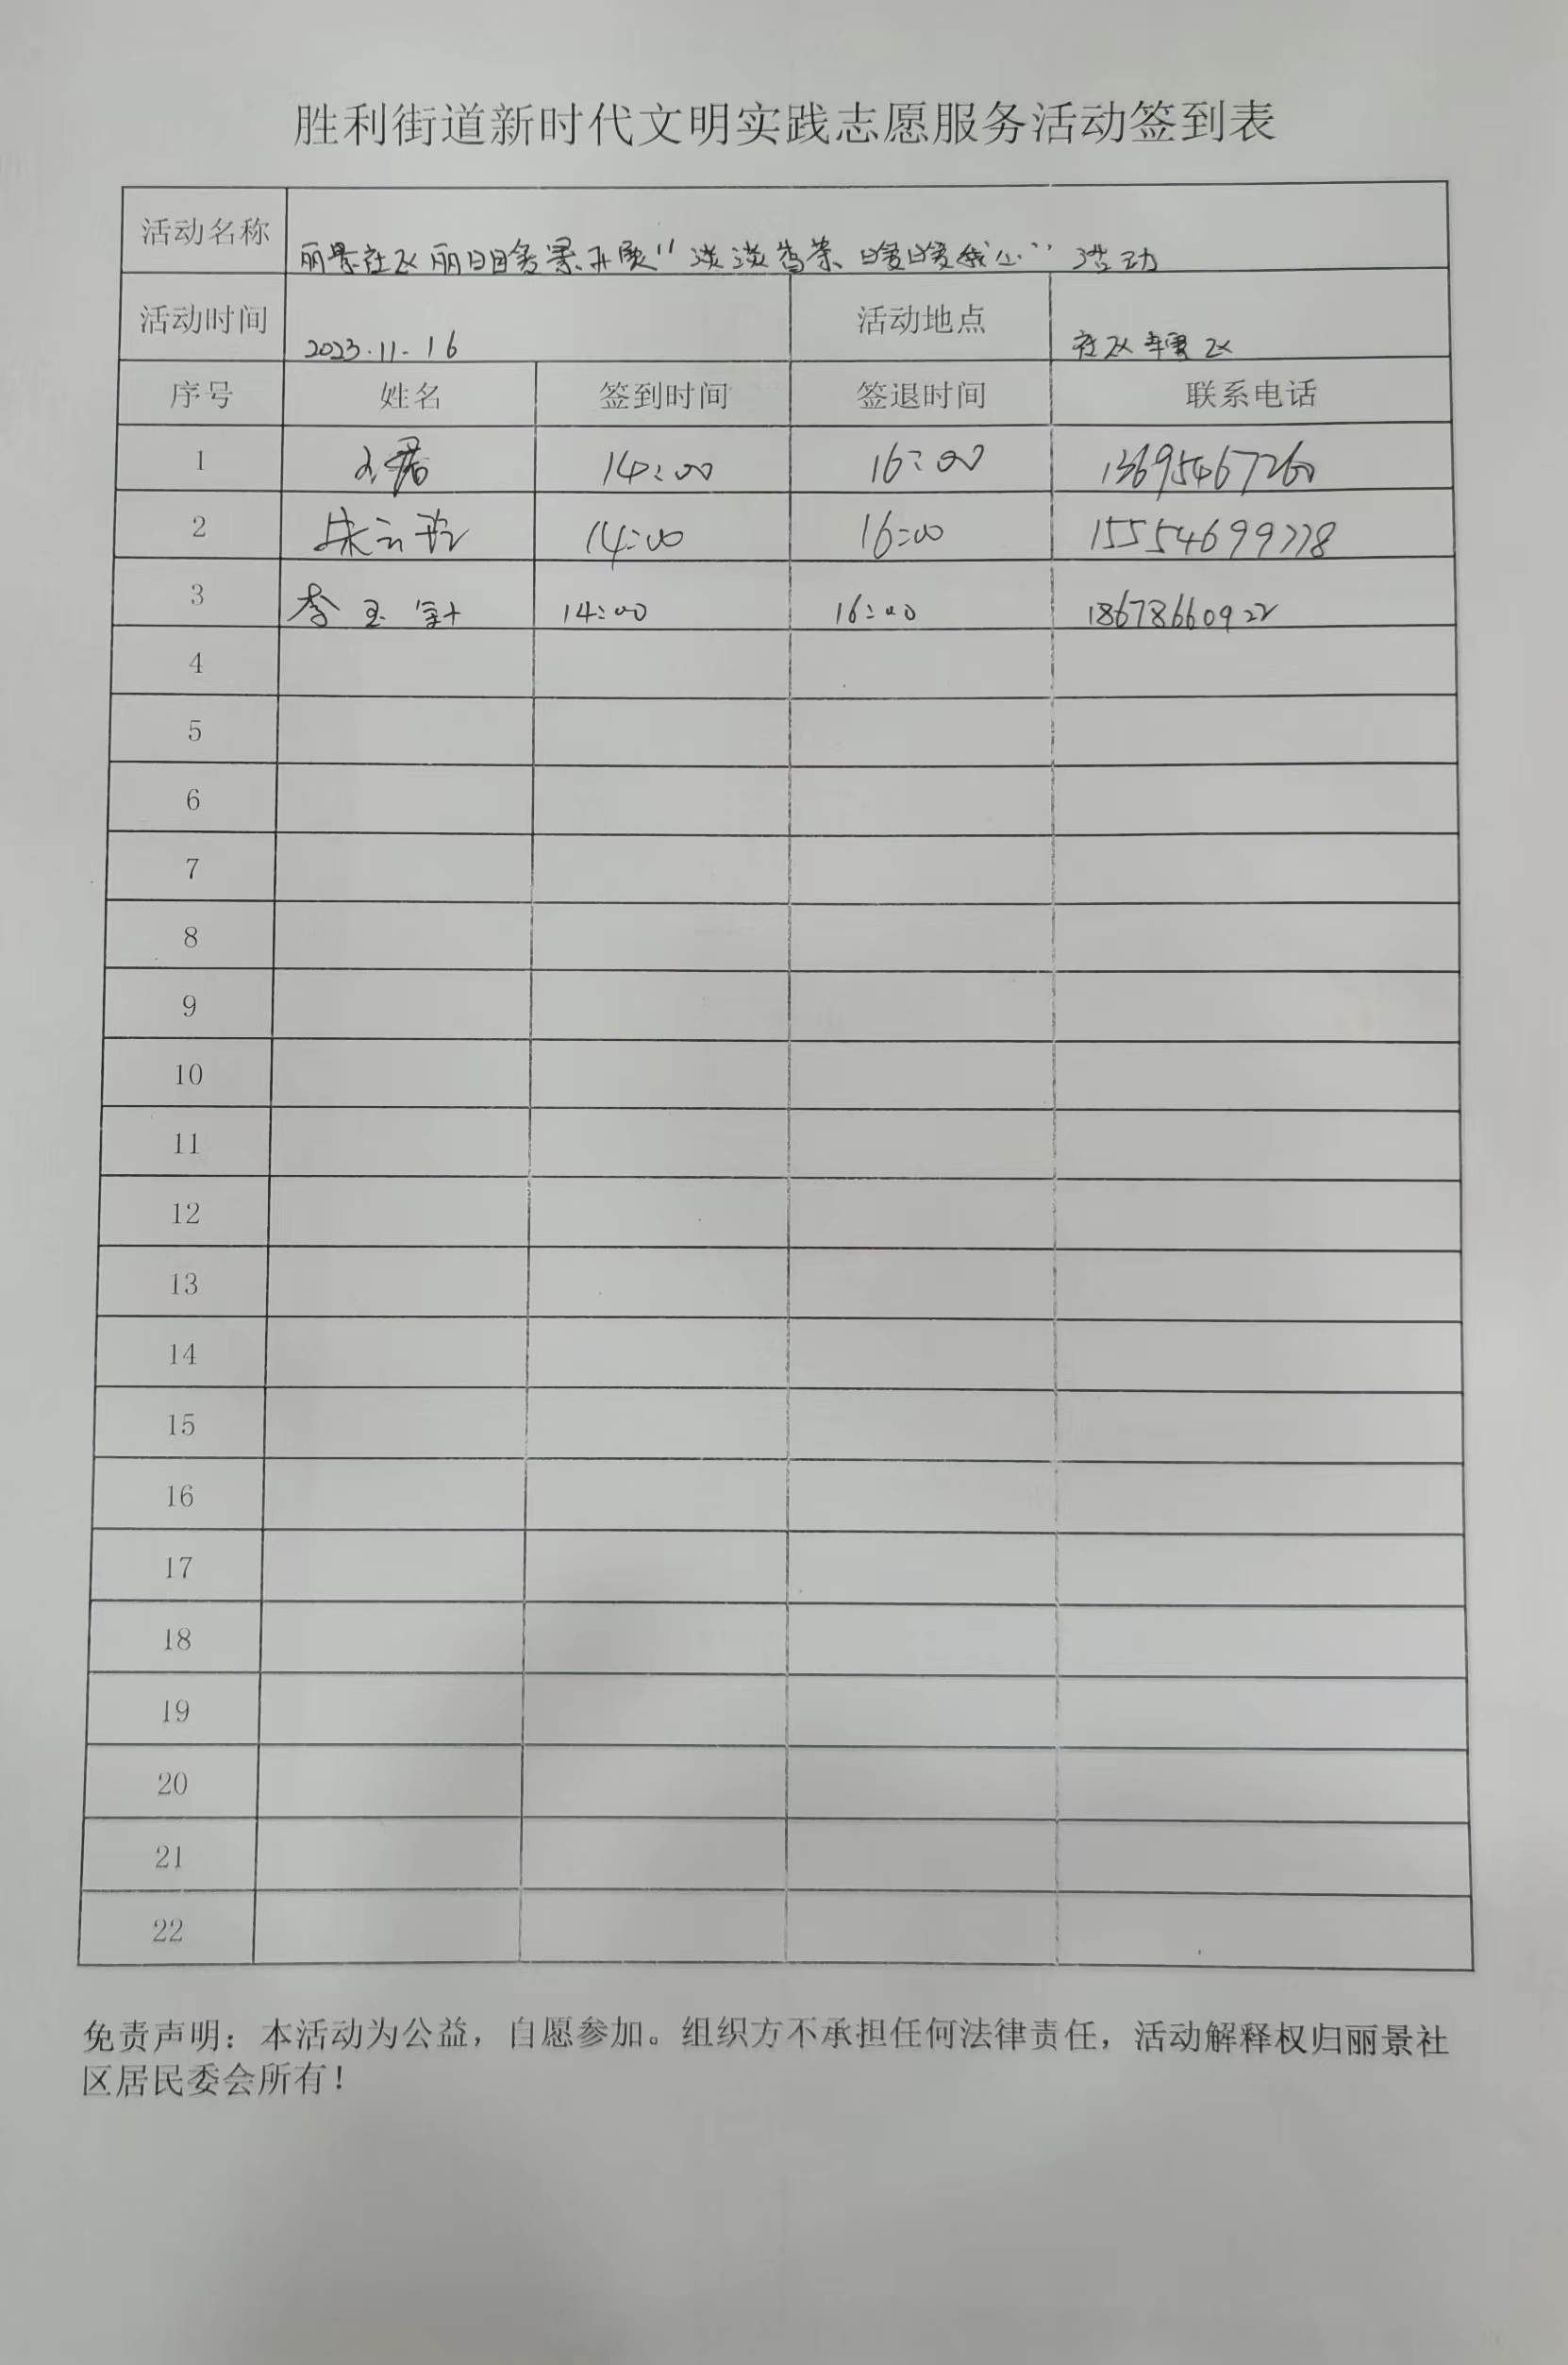 胜利街道新时代文明实践志愿服务活动签到表
活动名称 丽景社区丽日暖景开展“淡淡香茶、暖暖我心”活动
活动时间 2023.11-16 活动地点 社区辖区
序号 姓名 签到时间 签退时间 联系电话
1 14:00 16:00 13695467260
2 朱云 14:00 16:00 15554699778
3 李玉 14:00 16:00 18678660922
4
5
6
7
8
9
10
11
12
13
14
15
16
17
18
19
20
21
22
免责声明：本活动为公益，自愿参加。组织方不承担任何法律责任，活动解释权归丽景社
区居民委会所有！